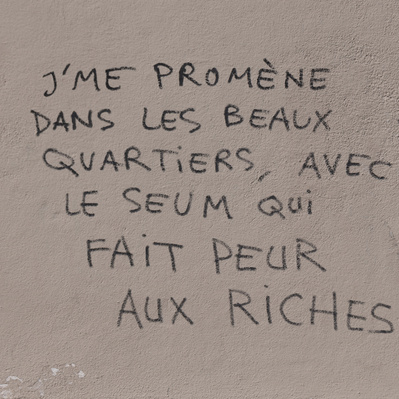 J'ME PROMÈNE
DANS LES BEAUX
QUARTiERS, AVEC
LE SEUM Qui
FAiT PEUR
AUX RiCHES